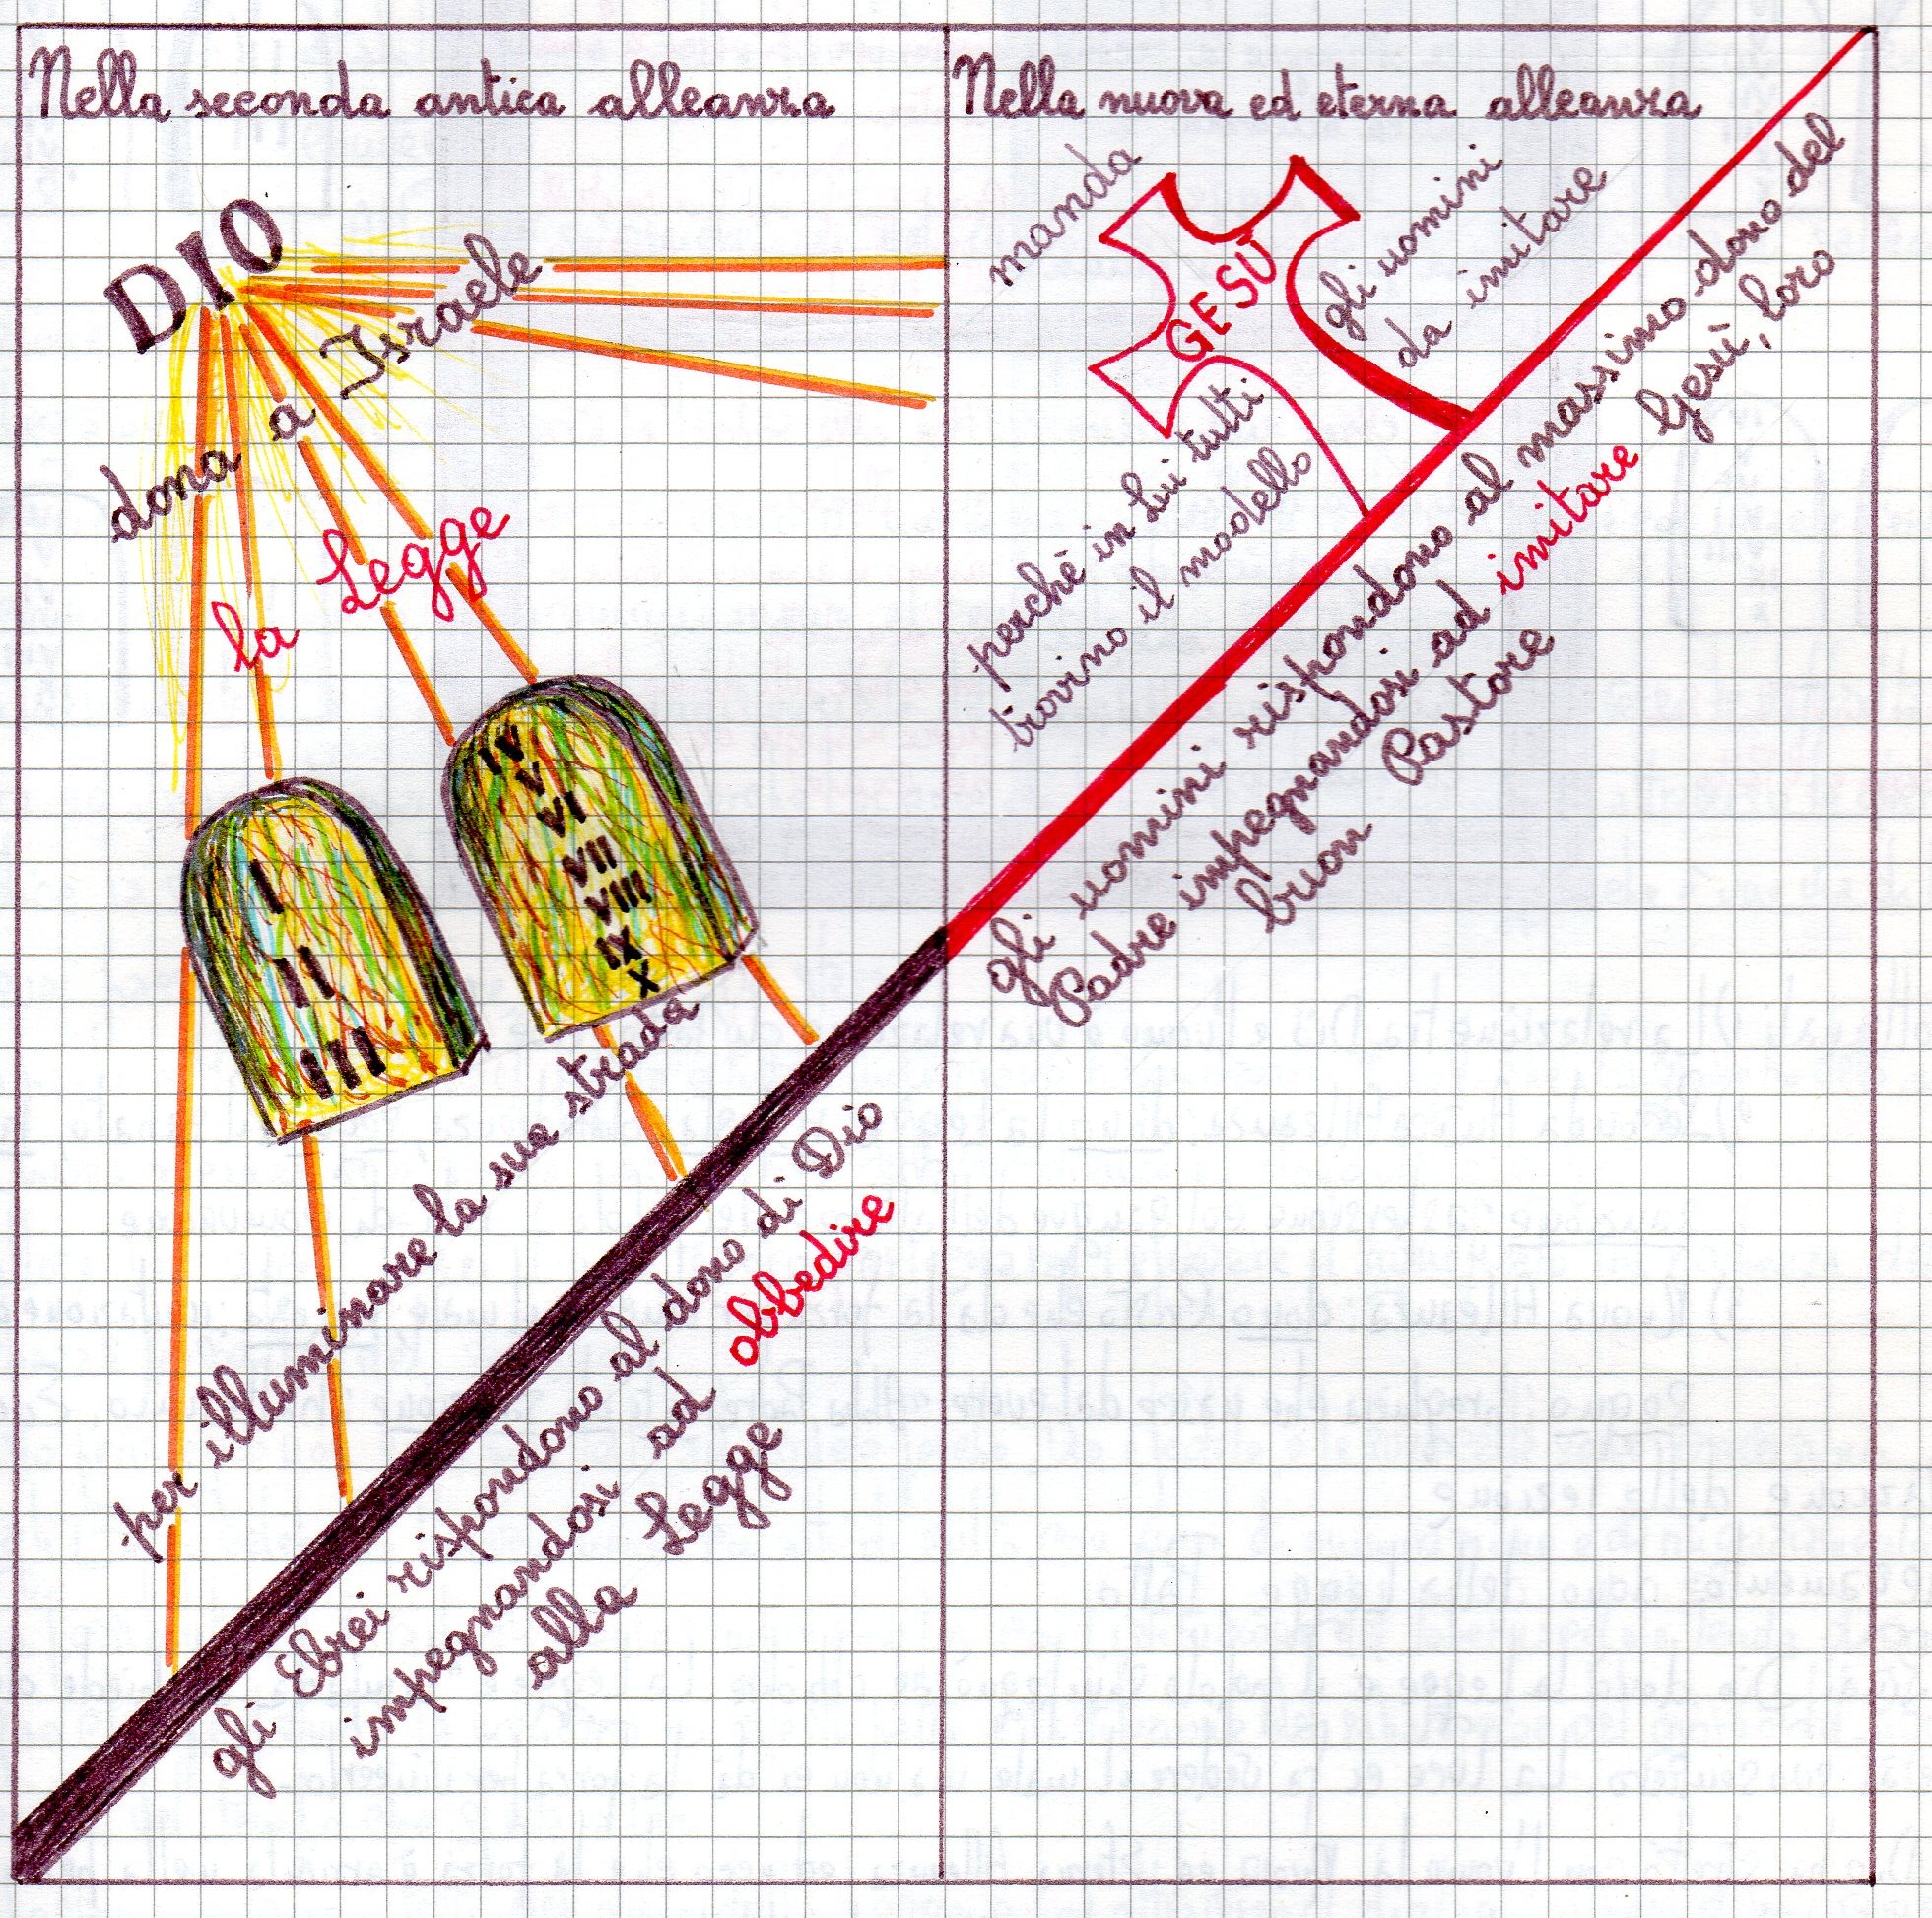 Nella seconda antica alleanza
DIO
dona a Israele
la Legge
I
II
III
IV
V
VI
VII
VIII
IX
X
per illuminare la sua strada
gli Ebrei rispondono al dono di Dio
impegnandosi ad obbedire
alla Legge
Nella nuova ed eterna alleanza
manda
GESÙ
perché in Lui tutti
trovino il modello
gli uomini
da imitare
gli uomini rispondono al massimo dono del
Padre impegnandosi ad imitare Gesù, loro
buon Pastore